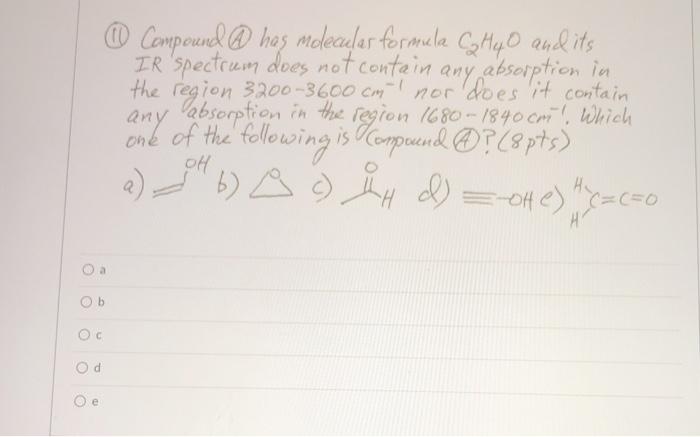 ⑪ Compound Ⓐ has molecular formula C₂H₄O and its
IR spectrum does not contain any absorption in
the region 3200-3600 cm⁻¹ nor does it contain
any absorption in the region 1680-1840 cm⁻¹. Which
one of the following is Compound Ⓐ? (8pts)
a) OH b) O c) O H d) ≡-OH e) H H C=C=O
a
b
c
d
e